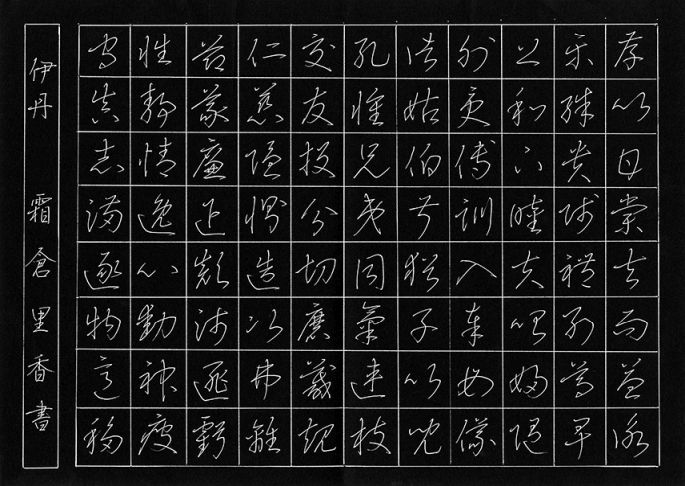 存以甘棠去而益詠
樂殊貴賤禮別尊卑
上和下睦夫唱婦隨
外受傅訓入奉母儀
諸姑伯叔猶子比兒
孔懷兄弟同氣連枝
交友投分切磨箴規
仁慈隱惻造次弗離
節義廉退顛沛匪虧
性靜情逸心動神疲
守真志満逐物意移
伊丹 霜倉里香書